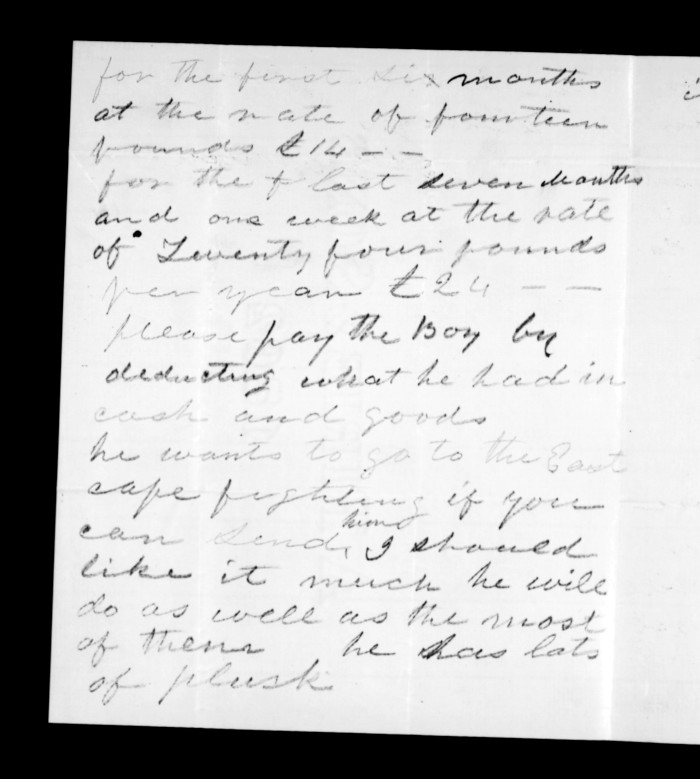 for the first six months
at the rate of fourteen
pounds £14 - -
for the & last seven Months
and one week at the rate
of Twenty four pounds
per year £24 - -
please pay the Boy by
deducting what he had in
cash and goods
he wants to go to the East
cape fighting if you
can send him I should
like it much he will
do as well as the most
of them he has lots
of plusk